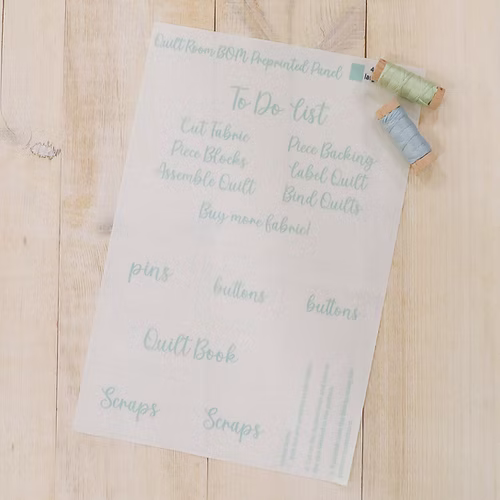 Quilt Room BOM Preprinted Panel
To Do List
Cut Fabric
Piece Blocks
Assemble Quilt
Piece Backing
Label Quilt
Bind Quilts
Buy more fabric!
pins
buttons
buttons
Quilt Book
Scraps
Scraps